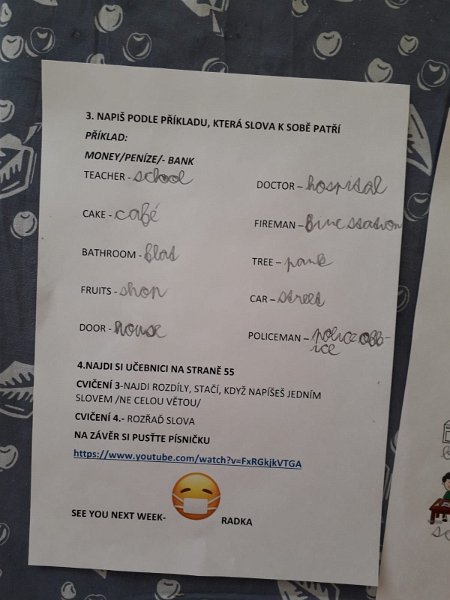 3. NAPIŠ PODLE PŘÍKLADU, KTERÁ SLOVA K SOBĚ PATŘÍ
PŘÍKLAD:
MONEY/PENÍZE/- BANK
TEACHER - school
DOCTOR - hospital
CAKE - café
FIREMAN - fire station
BATHROOM - flat
TREE - park
FRUITS - shop
CAR - street
DOOR - house
POLICEMAN - police off-
ice
4.NAJDI SI UČEBNICI NA STRANĚ 55
CVIČENÍ 3-NAJDI ROZDÍLY, STAČÍ, KDYŽ NAPÍŠEŠ JEDNÍM
SLOVEM /NE CELOU VĚTOU/
CVIČENÍ 4.- ROZŘAĎ SLOVA
NA ZÁVĚR SI PUSŤTE PÍSNIČKU
https://www.youtube.com/watch?v=FxRGkjkVTGA
SEE YOU NEXT WEEK- RADKA